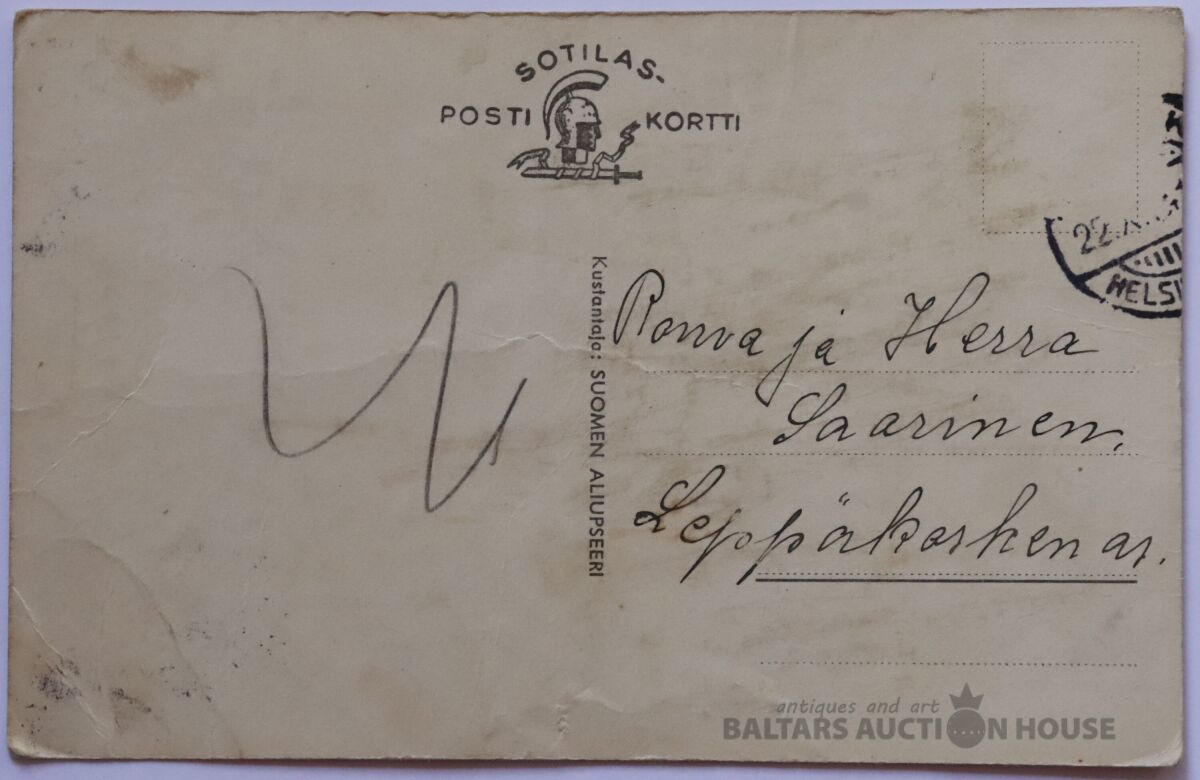 SOTILAS-
POSTI KORTTI
HELSI
Kustantaja: SUOMEN ALIUPSEERI
Rouva ja Herra
Saarinen,
Leppäkosken as.
antiques and art
BALTARS AUCTION HOUSE